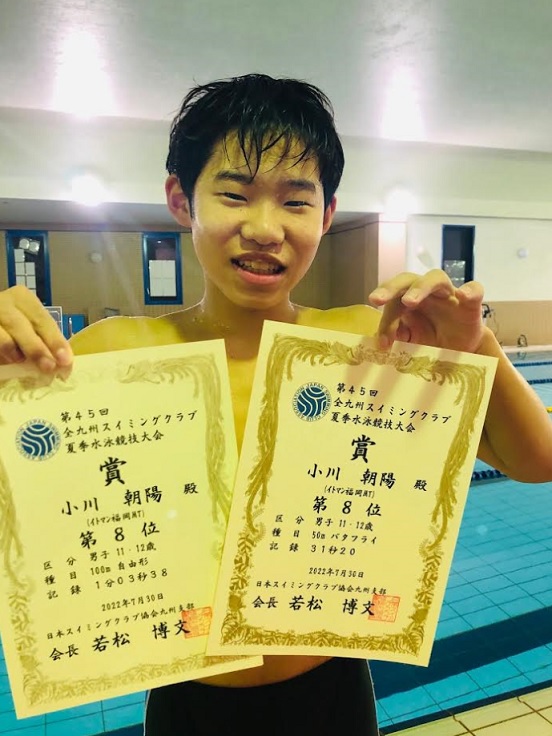 第45回
全九州スイミングクラブ
夏季水泳競技大会
賞
小川 朝陽 殿
(イトマン福岡MT)
第8位
区分 男子11-12歳
種目 100m 自由形
記録 1分03秒38
2022年7月30日
日本スイミングクラブ協会九州支部
会長 若松 博文
第45回
全九州スイミングクラブ
夏季水泳競技大会
賞
小川 朝陽 殿
(イトマン福岡MT)
第8位
区分 男子11-12歳
種目 50m バタフライ
記録 31秒20
2022年7月30日
日本スイミングクラブ協会九州支部
会長 若松 博文